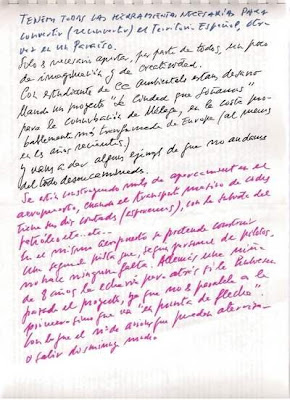 TENEMOS TODAS LAS HERRAMIENTAS NECESARIAS PARA
convertir (reconvertir) el Territorio Español, otra
vez en un Paraiso.
Solo es necesario aportar, por parte de todos, un poco
de imaginación y de creatividad.
Con estudiantes de CC Ambientales estan desarro
llando un proyecto "la Ciudad que soñamos"
para la conurbación de Málaga, en la costa pro-
bablemente más transformada de Europa (al menos
en los años recientes)
y vamos a dar algunos ejemplos de que no andamos
del todo desencaminados.
Se está construyendo miles de aparcamientos en el
aeropuerto, cuando el transporte privado de coches
tiene sus días contados (esperemos), con la subida del
petróleo etc... etc...
En el mismo aeropuerto se pretende construir
una segunda pista que, según personas de pilotos,
no hace ninguna falta. Además una niña
de 8 años la echaría para atrás si le hubiesen
pasado el proyecto, ya que no es paralela a la
primera sino que va "en punta de flecha".
Con lo que el nº de aviones que puedan aterrizar
o salir disminuye mucho.